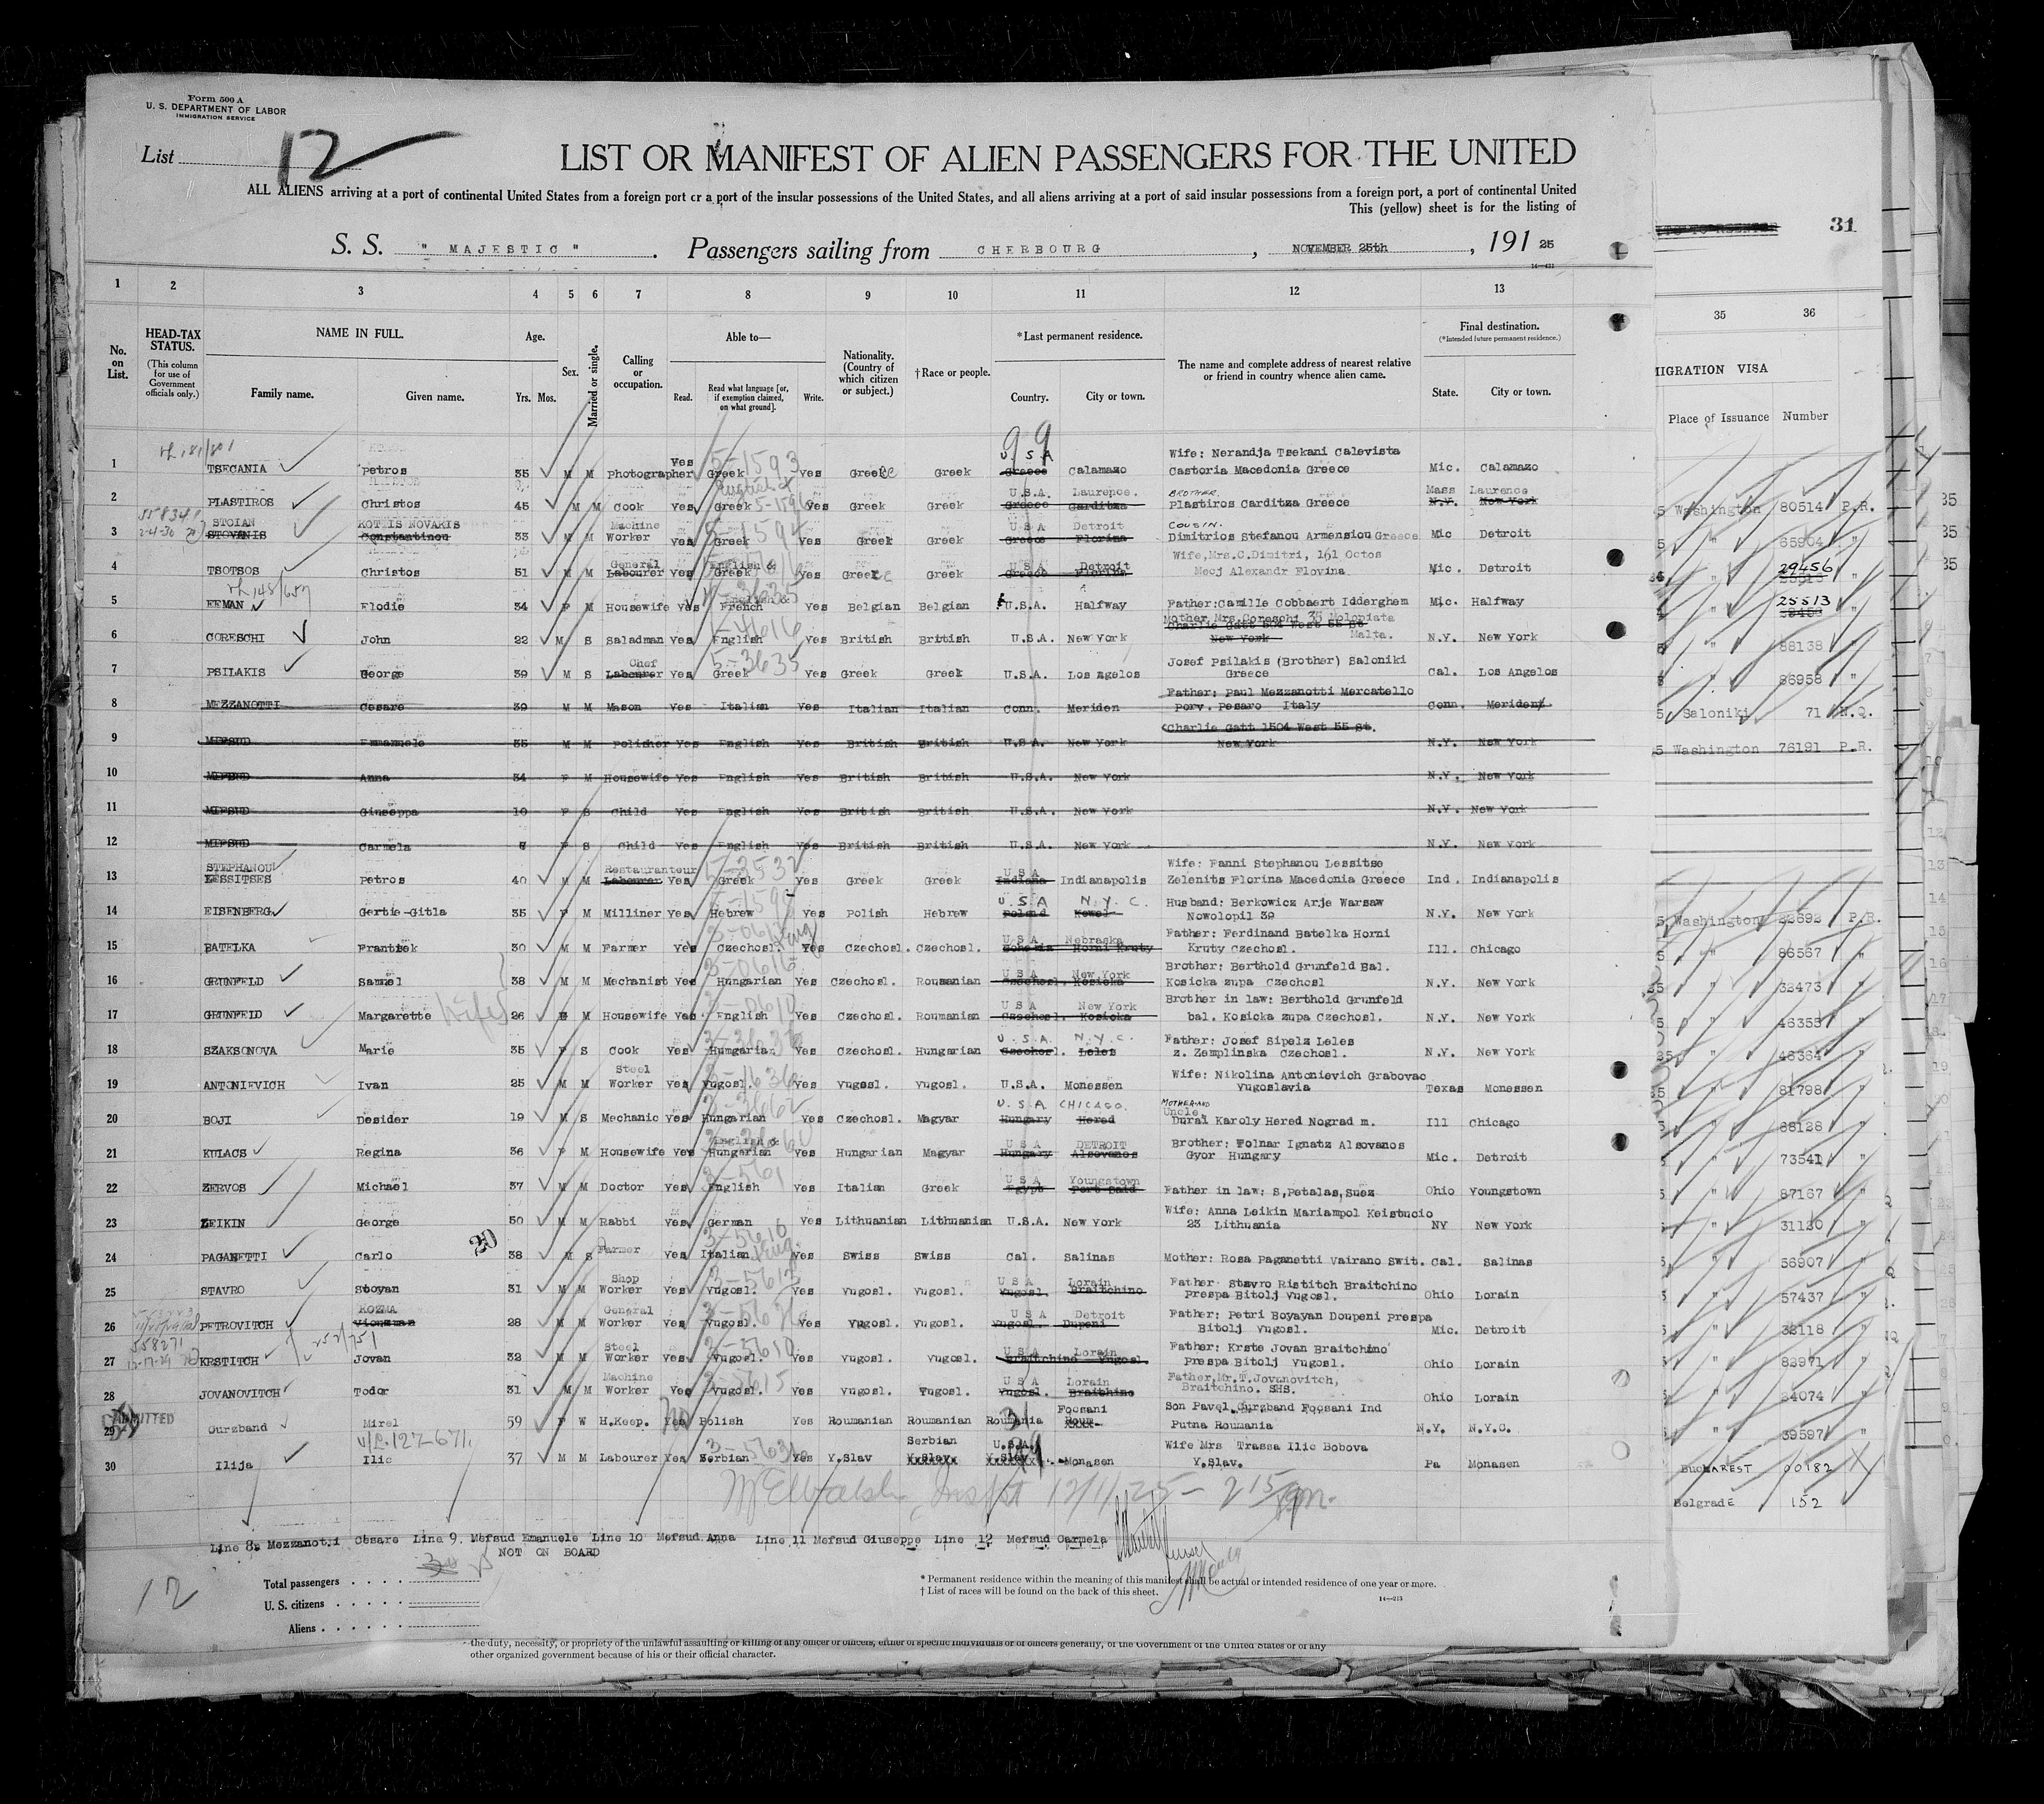 Form 500 A
U. S. DEPARTMENT OF LABOR
IMMIGRATION SERVICE
List 12
LIST OR MANIFEST OF ALIEN PASSENGERS FOR THE UNITED
ALL ALIENS arriving at a port of continental United States from a foreign port or a port of the insular possessions of the United States, and all aliens arriving at a port of said insular possessions from a foreign port, a port of continental United
This (yellow) sheet is for the listing of
S. S. " MAJESTIC " . Passengers sailing from CHERBOURG , NOVEMBER 25th , 191 25
31
1 2 3 4 5 6 7 8 9 10 11 12 13
35 36
No. on List.
HEAD-TAX STATUS.
(This column for use of Government officials only.)
NAME IN FULL.
Family name. Given name.
Age.
Yrs. Mos.
Sex.
Married or single.
Calling or occupation.
Able to—
Read. Read what language [or, if exemption claimed, on what ground]. Write.
Nationality. (Country of which citizen or subject.)
† Race or people.
* Last permanent residence.
Country. City or town.
The name and complete address of nearest relative or friend in country whence alien came.
Final destination.
(*Intended future permanent residence.)
State. City or town.
MIGRATION VISA
Place of Issuance Number
1 TSECANIA Petros 35 M M Photographer Yes Greek Yes Greek Greek U.S.A Greece Calamazo Wife: Nerandja Tsekani Calevista Castoria Macedonia Greece Mic. Calamazo
2 PLASTIROS Christos 45 M M Cook Yes Greek Yes Greek Greek U.S.A. Laurence. Greece Carditza BROTHER. Plastiros Carditza Greece Mass Laurence N.Y. New York
3 STOIAN STOVENIS KOTHIS NOVAKIS Constantinou 33 M M Machine Worker Yes Greek Yes Greek Greek U S A Detroit Greece Florina COUSIN. Dimitrios Stefanou Armensiou Greece Mic Detroit
4 TSOTSOS Christos 51 M M General Labourer Yes English & Greek Yes Greek Greek U S A Detroit Greece Florina Wife,Mrs.C.Dimitri, 161 Octos Meoj Alexandr Flovina Mic. Detroit
5 EEMAN Elodie 34 F M Housewife Yes English & French Yes Belgian Belgian U.S.A. Halfway Father:Camille Cobbaert Idderghem Mic. Halfway
6 CORESCHI John 22 M S Saladman Yes English Yes British British U.S.A. New York Mother Mrs.Coreschi 35 Molopiata Malta. Charlie Gatt 504 West 55 St New York N.Y. New York
7 PSILAKIS George 39 M S Chef Labourer Yes Greek Yes Greek Greek U.S.A. Los Agelos Josef Psilakis (Brother) Saloniki Greece Cal. Los Angelos
8 MEZZANOTTI Cesare 39 M M Mason Yes Italian Yes Italian Italian Conn. Meriden Father: Paul Mezzanotti Mercatello Porv. Pesaro Italy Conn. Meriden
9 MIFSUD Emmanuele 35 M M Polisher Yes English Yes British British U.S.A. New York Charlie Gatt 1504 West 55 St. New York N.Y. New York
10 MIFSUD Anna 34 F M Housewife Yes English Yes British British U.S.A. New York N.Y. New York
11 MIFSUD Giuseppa 10 F S Child Yes English Yes British British U.S.A. New York N.Y. New York
12 MIFSUD Carmela F S Child Yes English Yes British British U.S.A. New York N.Y. New York
13 STEPHANOU LESSITSES Petros 40 M M Restauranteur Labourer Yes Greek Yes Greek Greek U S A Indiana Indianapolis Wife: Fanni Stephanou Lessitse Zelenits Florina Macedonia Greece Ind. Indianapolis
14 EISENBERG Gertie-Gitla 35 F M Milliner Yes Hebrew Yes Polish Hebrew U.S.A N.Y.C. Poland Kowel Husband: Berkowicz Arje Warsaw Nowolopil 39 N.Y. New York
15 BATELKA Frantisek 30 M M Farmer Yes Czechosl. Yes Czechosl. Czechosl. U S A Nebraska Bohemia Horni Kruty Father: Ferdinand Batelka Horni Kruty Czechosl. Ill. Chicago
16 GRUNFELD Samuel 38 M M Mechanist Yes Hungarian Yes Czechosl. Roumanian U S A New York Czechosl. Kosicka Brother: Berthold Grunfeld Bal. Kosicka zupa Czechosl N.Y. New York
17 GRUNFELD Margarette Wife 26 M Housewife Yes English Yes Czechosl. Roumanian U S A New York Czechosl. Kosicka Brother in law: Berthold Grunfeld bal. Kosicka zupa Czechosl. N.Y. New York
18 SZAKSONOVA Marie 35 F S Cook Yes Hungarian Yes Czechosl. Hungarian U.S.A. N.Y.C. Czechosl. Leles Father: Josef Sipelz Leles z. Zemplinska Czechosl. N.Y. New York
19 ANTONIEVICH Ivan 25 M M Steel Worker Yes Yugosl. Yes Yugosl. Yugosl. U.S.A. Monessen Wife: Nikolina Antonievich Grabovac Yugoslavia Texas Monessen
20 BOJI Desider 19 M S Mechanic Yes Hungarian Yes Czechosl. Magyar U.S.A CHICAGO. Hungary Hered MOTHER-AND Uncle. Dural Karoly Hered Nograd m. Ill Chicago
21 KULACS Regina 36 F M Housewife Yes English & Hungarian Yes Hungarian Magyar U S A DETROIT Hungary Alsovanos Brother: Folnar Ignatz Alsovanos Gyor Hungary Mic. Detroit
22 ZERVOS Michael 37 M M Doctor Yes English Yes Italian Greek U S A Youngstown Egypt Port Said Father in law: S,Petalas,Suez Ohio Youngstown
23 LEIKIN George 50 M M Rabbi Yes German Yes Lithuanian Lithuanian U.S.A. New York Wife: Anna Leikin Mariampol Keistucio 23 Lithuania NY New York
24 PAGANETTI Carlo 38 M S Farmer Yes Italian Yes Swiss Swiss Cal. Salinas Mother: Rosa Paganetti Vairano Swit. Cal. Salinas
25 STAVRO Stoyan 31 M M Shop Worker Yes Yugosl. Yes Yugosl. Yugosl. U S A Lorain Yugosl. Braitchino Father: Stavro Ristitch Braitchino Prespa Bitolj Yugosl. Ohio Lorain
26 PETROVITCH KOZMA 28 M M General Worker Yes Yugosl. Yes Yugosl. Yugosl. U S A Detroit Yugosl. Dupeni Father: Petri Boyayan Doupeni Prespa Bitolj Yugosl. Mic. Detroit
27 KRSTITCH Jovan 32 M M Steel Worker Yes Yugosl. Yes Yugosl. Yugosl. U S A Lorain Braitchino Yugosl. Father: Krste Jovan Braitchino Prespa Bitolj Yugosl. Ohio Lorain
28 JOVANOVITCH Todor 31 M M Machine Worker Yes Yugosl. Yes Yugosl. Yugosl. U S A Lorain Yugosl. Braitchino Father,Mr.T.Jovanovitch, Braitchino. SHS. Ohio Lorain
29 ADMITTED Ourzband Mirel 59 F W H.Keep. Yes No Polish Yes Roumanian Roumanian Roumania Focsani Son Pavel Ourzband Focsani Ind Putna Roumania N.Y. N.Y.C.
30 Ilija Ilic 37 M M Labourer Yes Serbian Yes Y.Slav Serbian U.S.A. Monasen Wife Mrs Trassa Ilic Bobova Y.Slav. Pa Monasen
Washington 80514 P.R.
" 65904 "
" 29456 "
" 25513 "
" 88138 "
" 86958 "
Saloniki 71 N.Q.
Washington 76191 P.R.
Washington 22692 P.R.
" 86567 "
" 32473 "
" 46353 "
" 48364 "
" 81798 "
" 88128 "
" 73541 "
" 87167 "
" 31120 "
" 56907 "
" 57437 "
" 32118 "
" 82971 "
" 24074 "
" 39597 "
BucHAREST 00182
Belgrade 152
12/1/25 - 2 15 pm.
Line 8: Mezzanotti Cesare Line 9. Mefsud Emanuele Line 10 Mefsud Anna Line 11 Mefsud Giuseppe Line 12 Mefsud Carmela
NOT ON BOARD
12
Total passengers
U. S. citizens
Aliens
* Permanent residence within the meaning of this manifest shall be actual or intended residence of one year or more.
† List of races will be found on the back of this sheet.
14—213
the duty, necessity, or propriety of the unlawful assaulting or killing of any officer or officers, either of specific individuals or of officers generally, of the Government of the United States or of any
other organized government because of his or their official character.